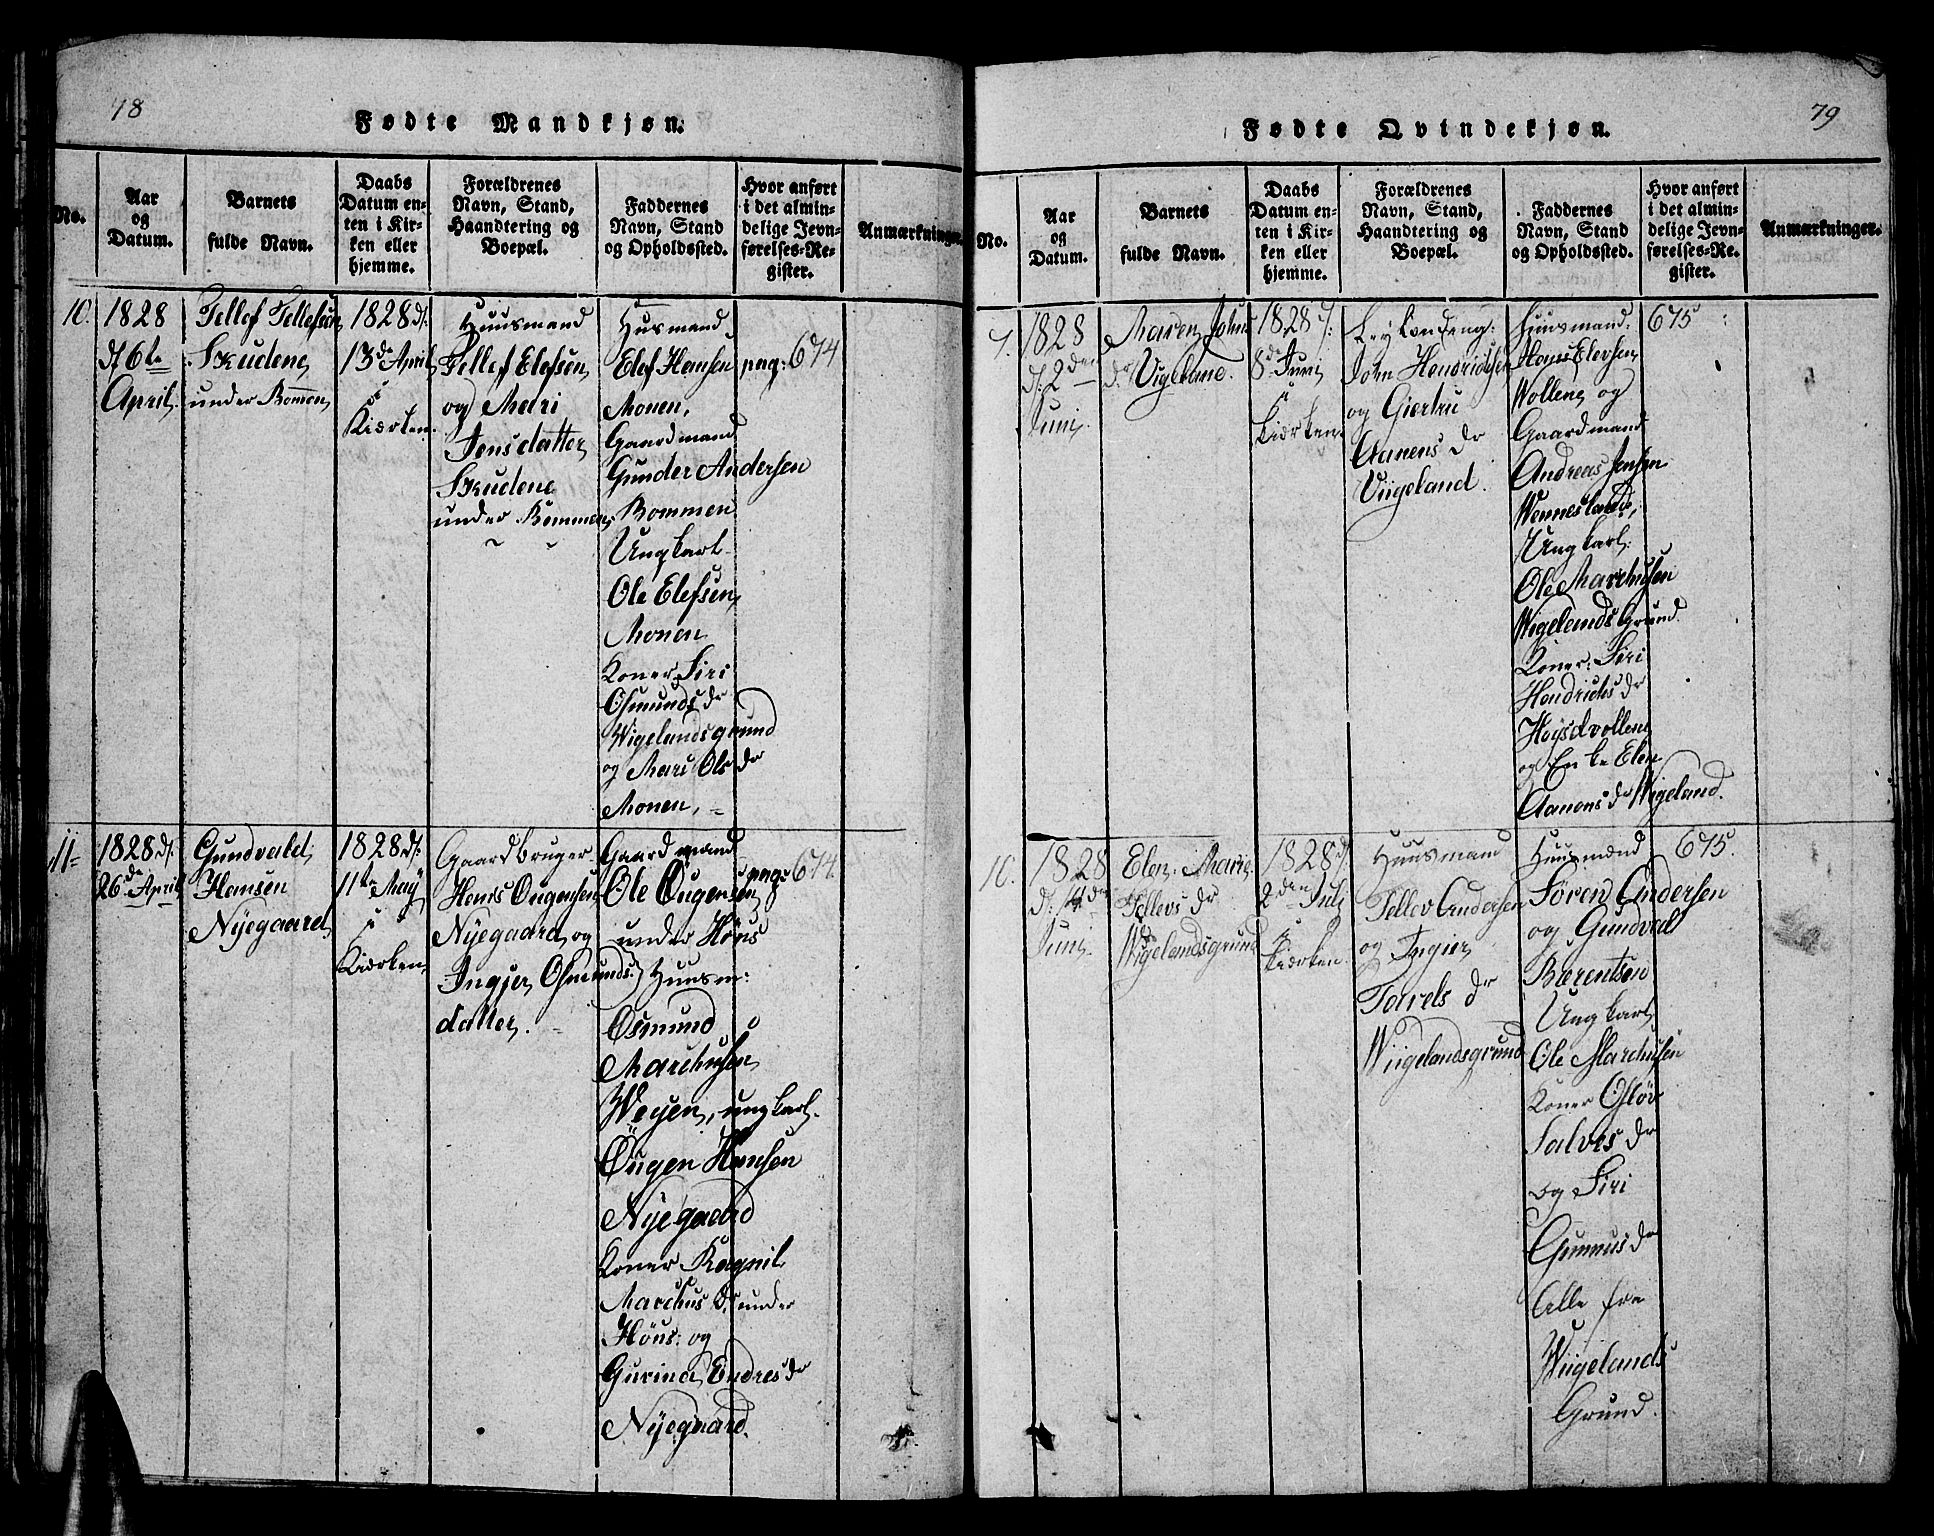 78
Fødte Mandkjøn.
No.
Aar
og
Datum.
Barnets
fulde Navn.
Daabs
Datum en-
ten i Kir-
ken eller
hjemme.
Forældrenes
Navn, Stand,
Haandtering og
Boepæl.
Faddernes
Navn, Stand
og Opholdssted.
Hvor anført
i det almin-
delige Jevn-
førelses-Re-
gister.
Anmærkninger.
10.
1828
d. 6te
April.
Tellef Tellefsen
Skudene
under Bommen
1828 d:
13de April
i
Kiørken.
Huusmand
Tellef Elefsen
og Mari
Jensdatter
Skudene
under Bommen
Husmand
Elef Hansen
Monen,
Gaardmand
Gunder Andersen
Bommen
Ungkarl
Ole Elefsen
Monen
Koner Siri
Osmunds dr
Wigelandsgrund
og Mari Ols dr
Monen,
pag: 674
11
1828 d:
26de April
Gundvald
Hansen
Nyegaard
1828 d:
11te May
i
Kiørken
Gaardbruger
Hans Ougensen
Nyegaard og
Ingier Osmunds
datter.
Gaardmand
Ole Ougensen
under Höus
Huusm:
Osmund
Marchusen
Weyen, ungkarl.
Öugen Hansen
Nyegaard
Koner Ragnil
Marchus d. under
Höus: og
Gurina Endres dr
Nyegaard.
pag: 674.
79
Fødte Qvindekjøn.
No.
Aar
og
Datum.
Barnets
fulde Navn.
Daabs
Datum en-
ten i Kir-
ken eller
hjemme.
Forældrenes
Navn, Stand,
Haandtering og
Boepæl.
Faddernes
Navn, Stand
og Opholdssted.
Hvor anført
i det almin-
delige Jevn-
førelses-Re-
gister.
Anmærkninger.
1828
d. 2den
Juni.
Maren Johns
dr Vigeland.
1828 d:
8de Juni
i
Kiørken.
John Hendrichsen
og Giertru
Aanens dr
Viigeland.
Huusmand:
Hans Elevsen
Wollene og
Gaardmand
Andreas Jensen
Wennesland,
Ungkarl:
Ole Marchusen
Wigelands Grund.
Koner: Siri
Hendrichs dr
Höysdvollene
og Enke Elen
Aanons dr Wigeland.
675
10.
1828
d: 4de
Juni.
Elen Marie
Tellevs dr
Wigelandsgrund
1828 d
2den Juli
i
Kiørken.
Huusmand
Tellev Andersen
og Ingier
Tarels dr
Wiigelandsgrund
Huusmænd
Sören Andersen
og Gundvad
Bærentsen
Ungkarl
Ole Marchusen
Koner Oslöv
Salves dr
og Siri
Gunnus dr
Alle fra
Wiigelands
Grund.
675.